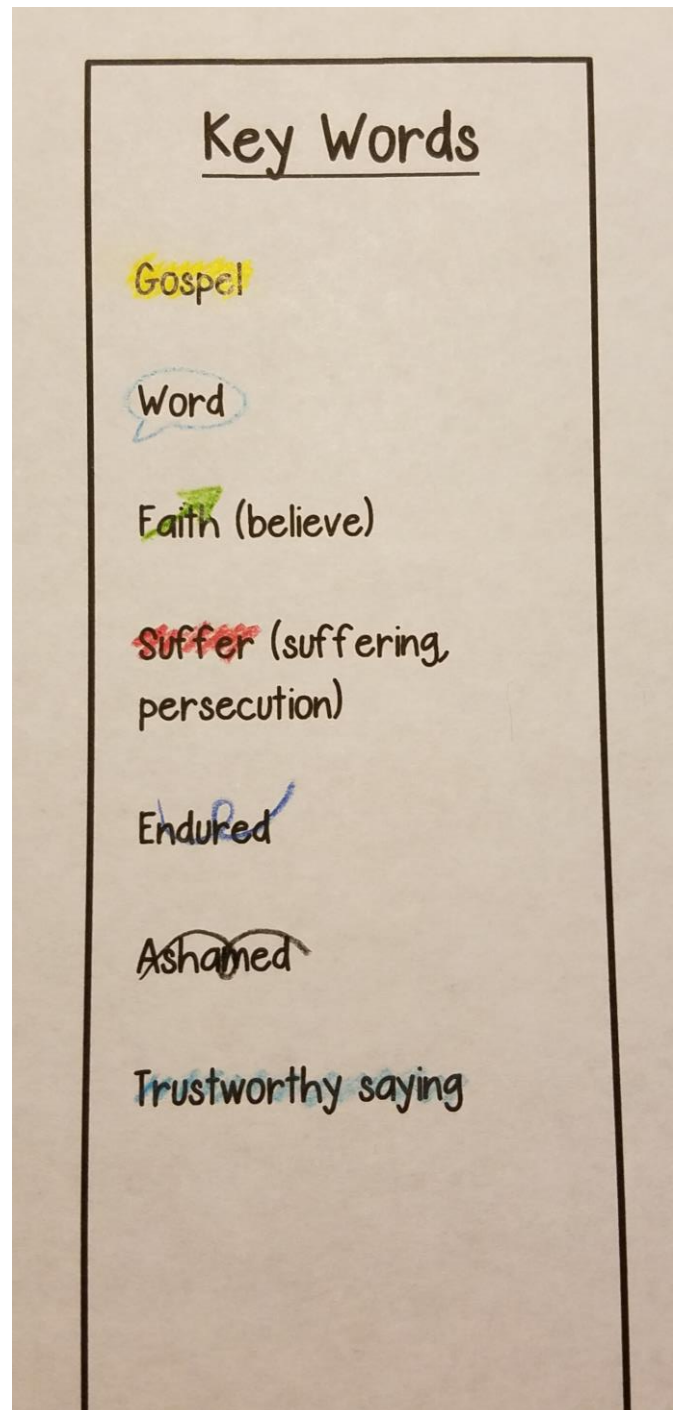 Key Words
Gospel
Word
Faith (believe)
Suffer (suffering,
persecution)
Endured
Ashamed
Trustworthy saying